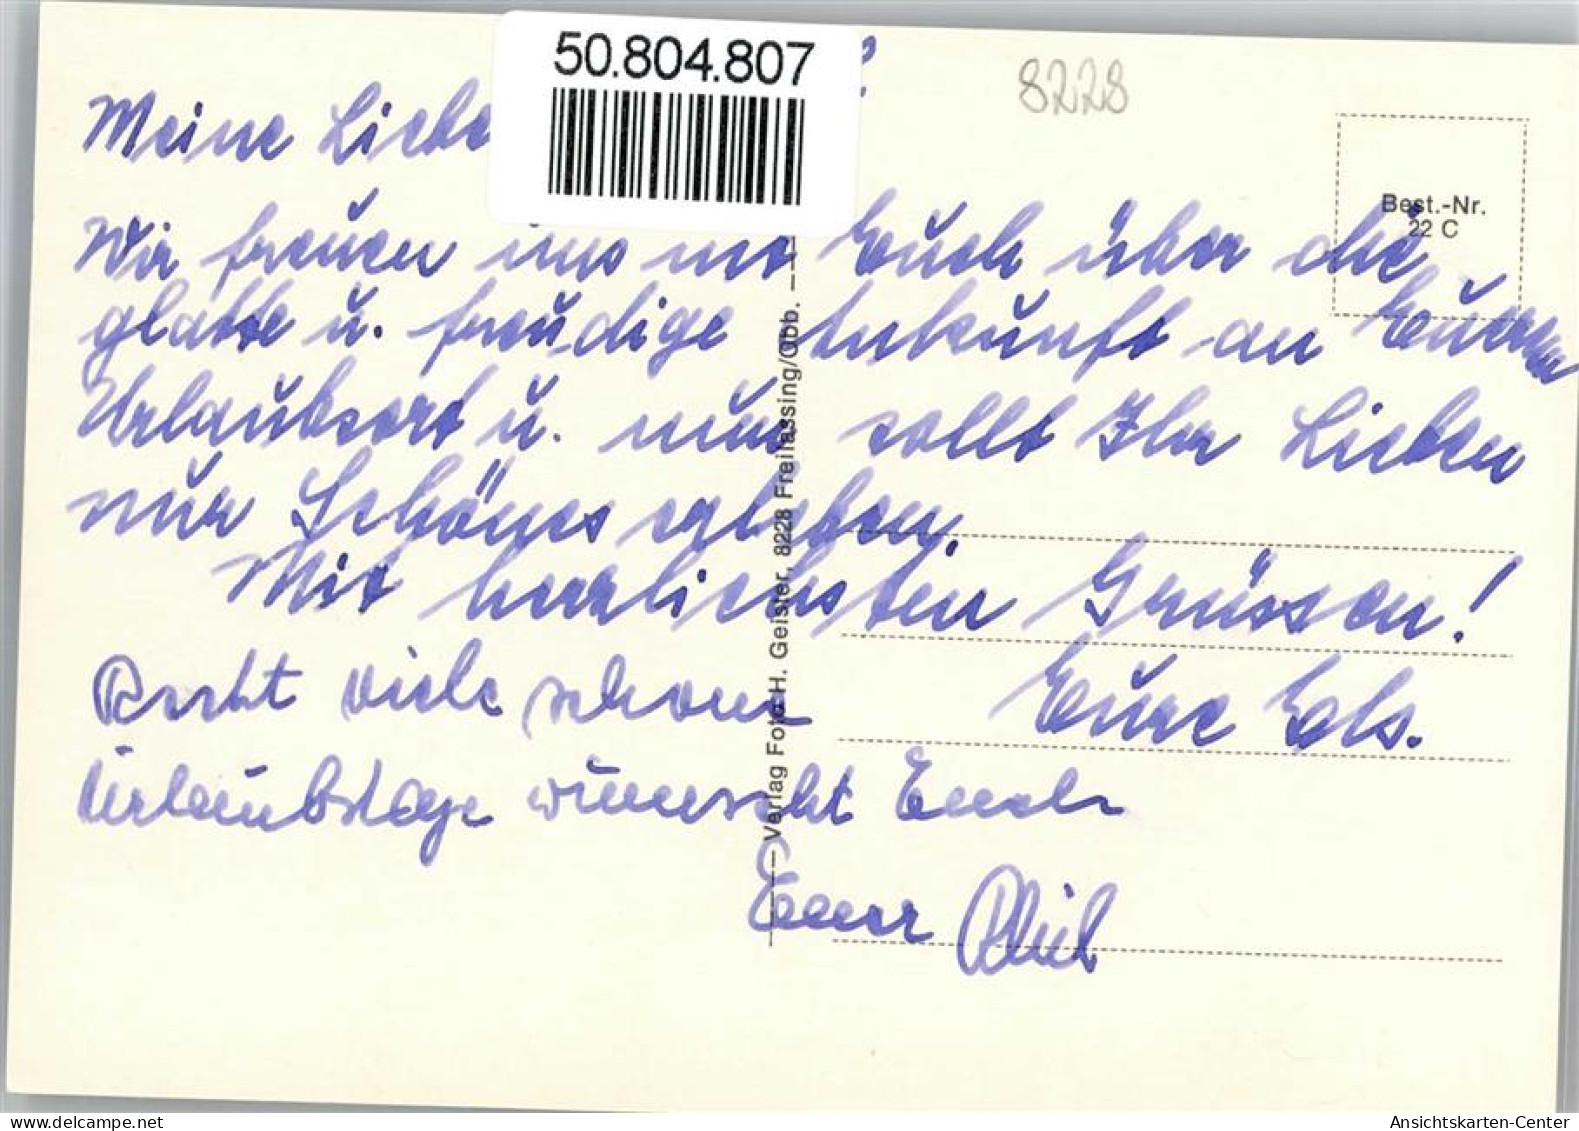 50.804.807
8228
Meine Liebe
Best.-Nr.
22 C
Wir freuen uns mit Euch über die
glatte u. freudige Ankunft an Eurem
Urlaubsort u. nun sollt Ihr Lieben
nur Schönes erleben.
Mit herzlichsten Grüssen!
Eure Els.
Recht viele schöne
Urlaubstage wünscht Euch
Euer
Verlag Foto H. Geister, 8228 Freilassing/Obb.
delcampe.net
Ansichtskarten-Center